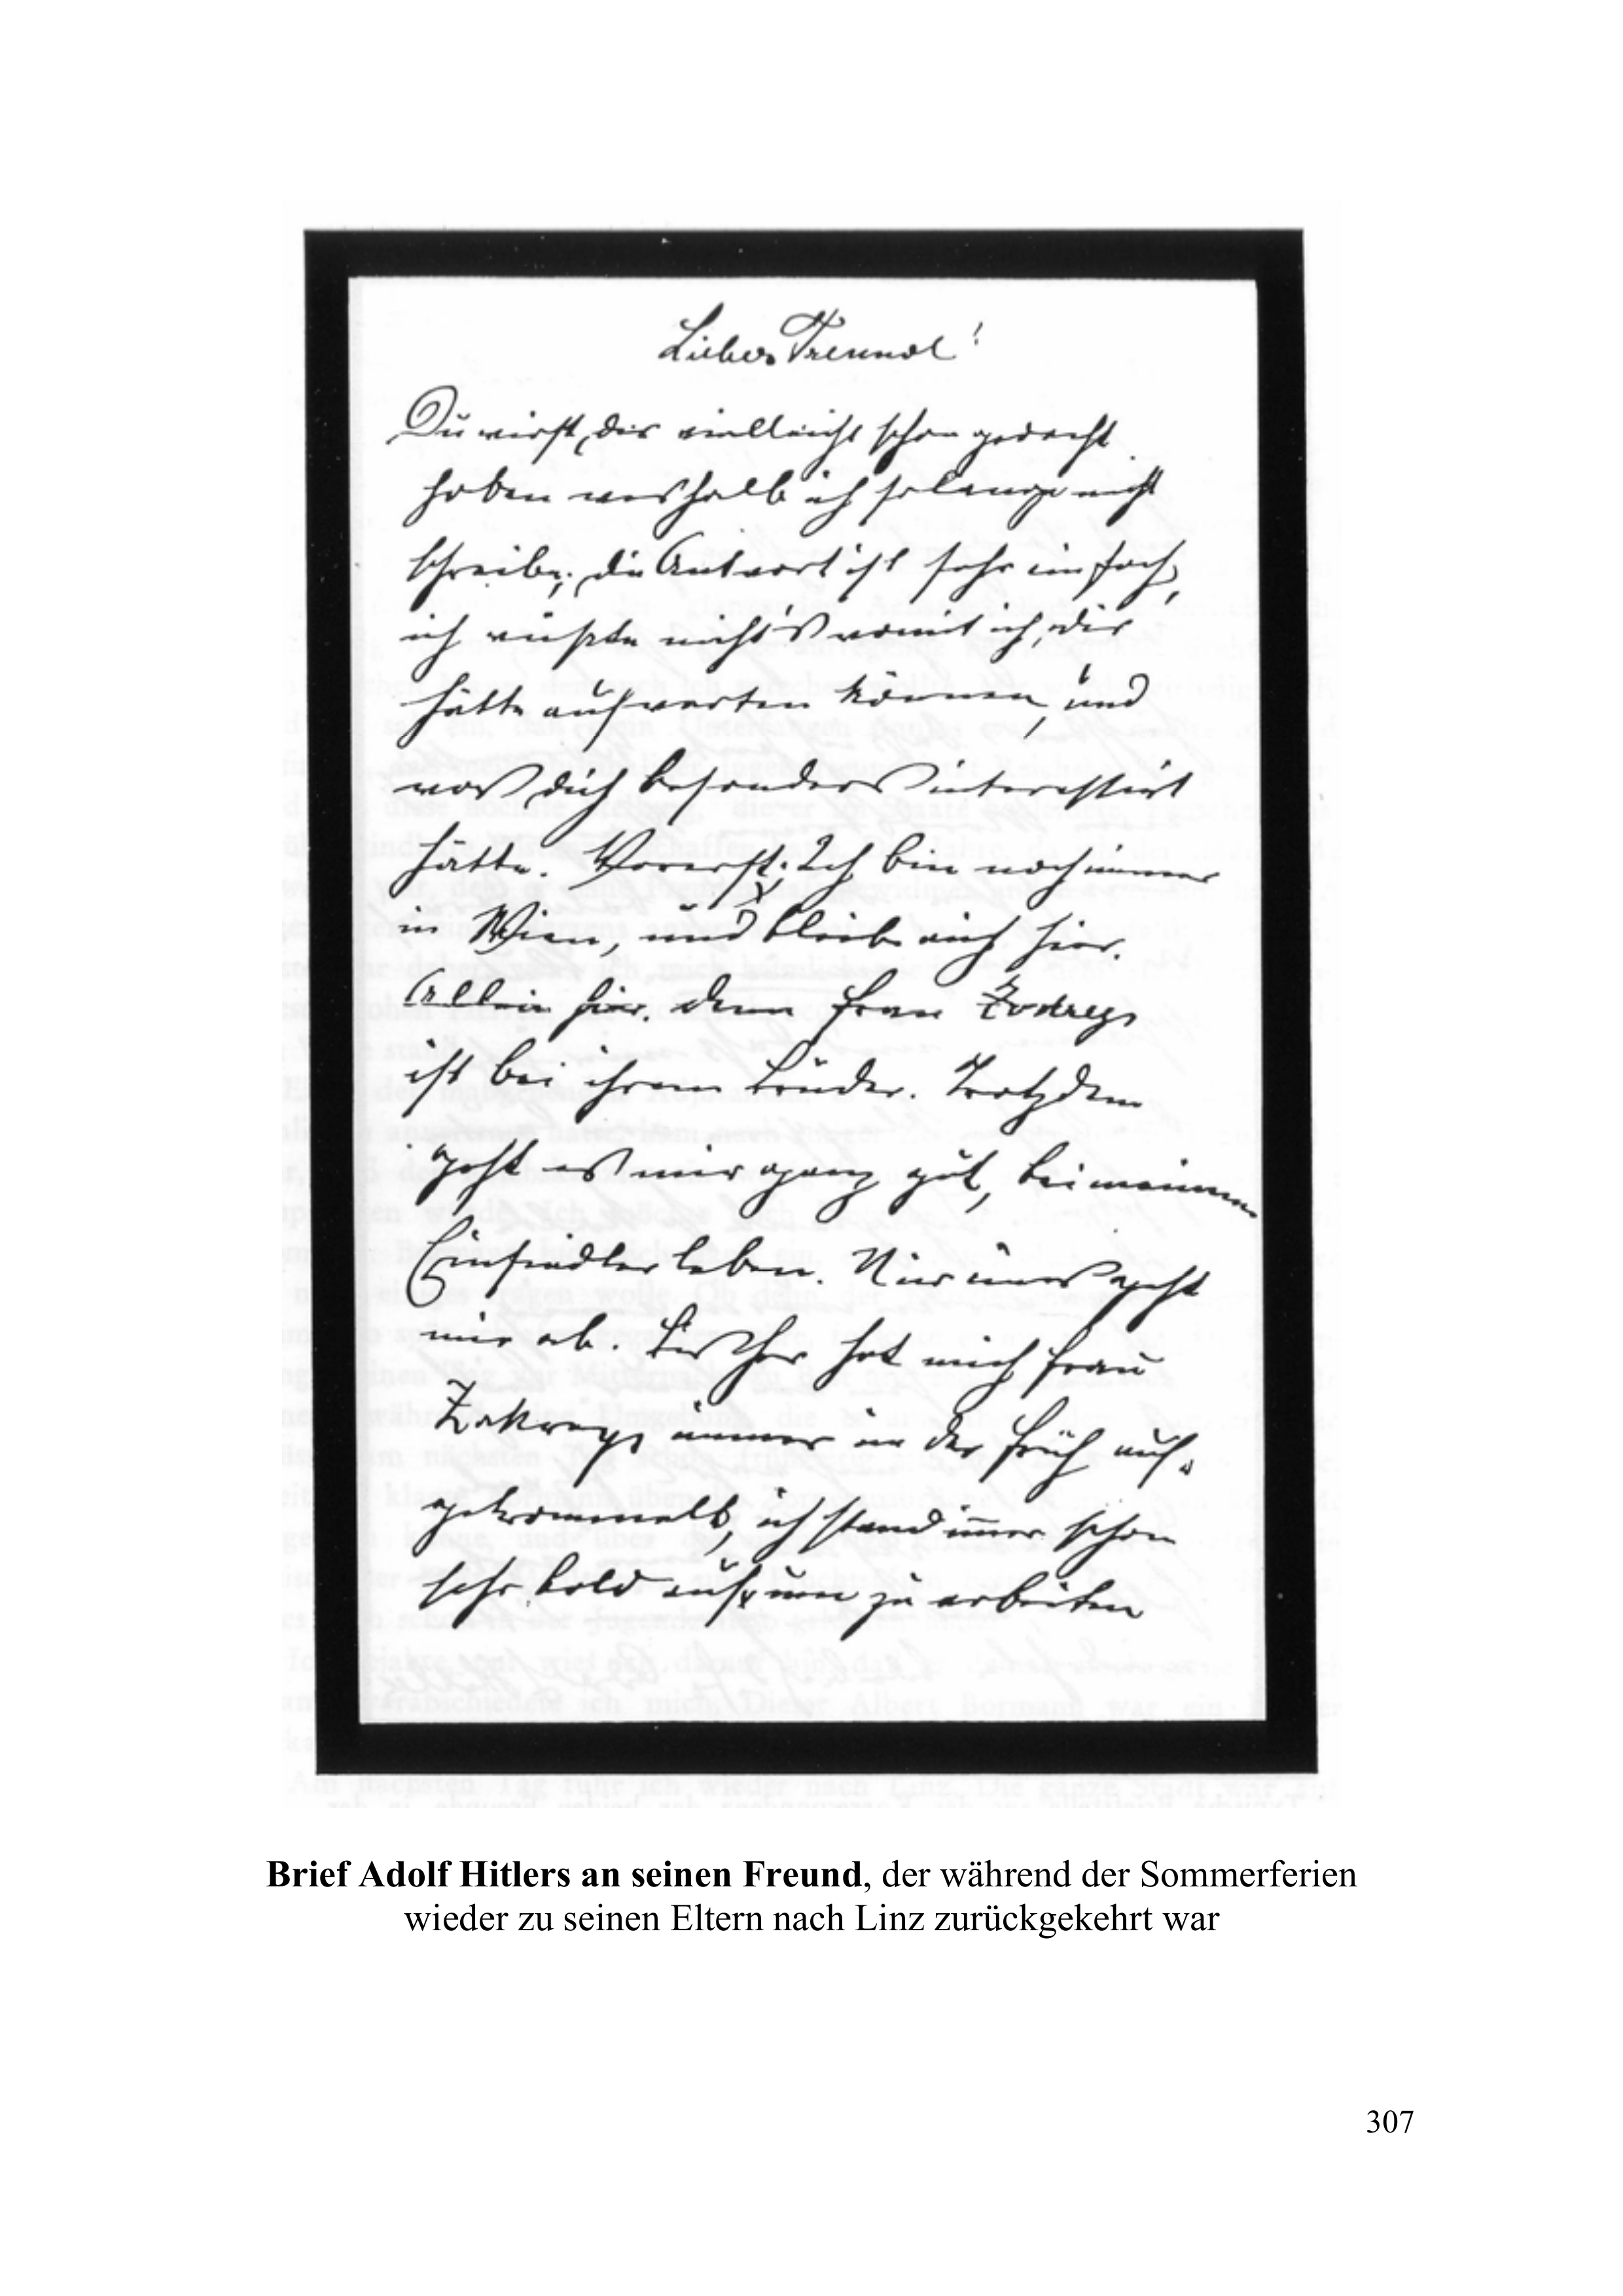 Lieber Freund!
Du wirst dir vielleicht schon gedacht
haben weshalb ich solange nicht
schreibe, die Antwort ist sehr einfach,
ich wüßte nicht's womit ich dir
hätte aufwarten können, und
was dich besonders interessirt
hätte. Vorerst; Ich bin noch immer
in Wien, und bleibe auch hier.
Allein hier, denn Frau Zodregs
ist bei ihrem Bruder. Trotzdem
geht es mir ganz gut, bei meinem
Einsiedlerleben. Nur eines geht
mir ab. Bisher hat mich Frau
Zakreys immer in der Früh auf-
getrommelt, ich stand immer schon
sehr bald auf, um zu arbeiten
Brief Adolf Hitlers an seinen Freund, der während der Sommerferien
wieder zu seinen Eltern nach Linz zurückgekehrt war
307